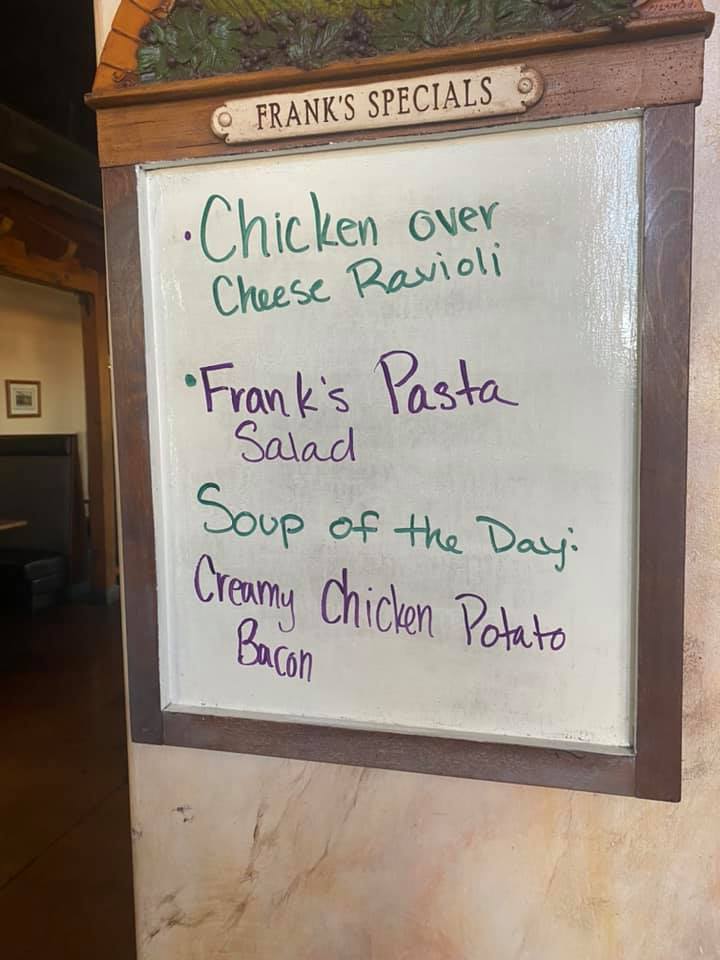 FRANK'S SPECIALS
·Chicken over
Cheese Ravioli
·Frank's Pasta
Salad
Soup of the Day:
Creamy Chicken Potato
Bacon